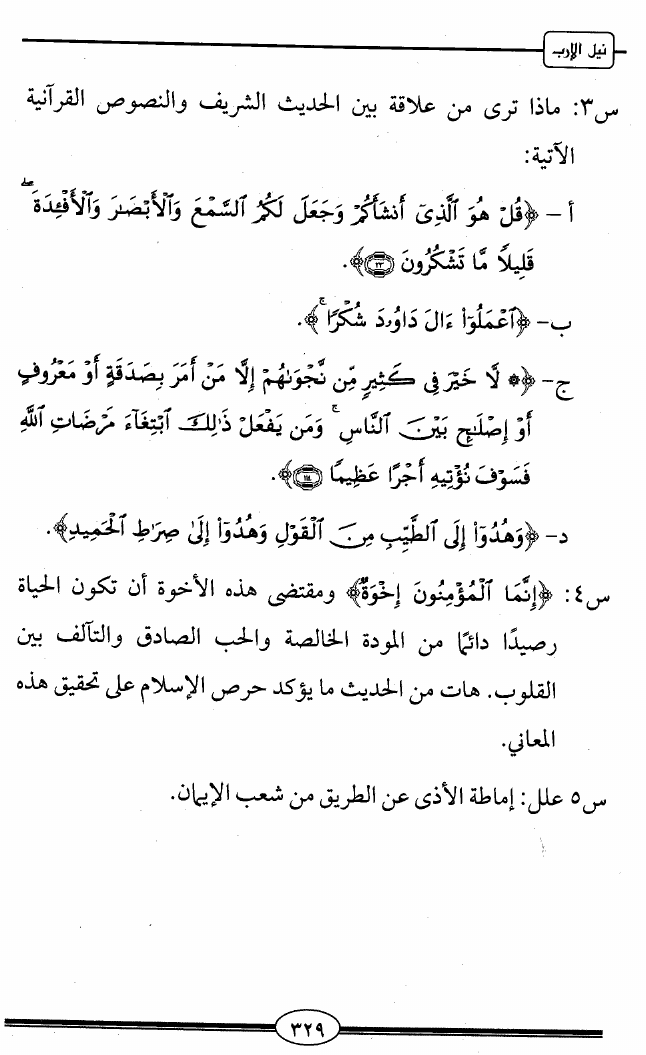 نيل الإرب
س٣: ماذا ترى من علاقة بين الحديث الشريف والنصوص القرآنية
الآتية:
أ - ﴿قُلْ هُوَ ٱلَّذِىٓ أَنشَأَكُمْ وَجَعَلَ لَكُمُ ٱلسَّمْعَ وَٱلْأَبْصَٰرَ وَٱلْأَفْـِٔدَةَ ۖ
قَلِيلًا مَّا تَشْكُرُونَ ۝٢٣﴾.
ب- ﴿ٱعْمَلُوٓا۟ ءَالَ دَاوُۥدَ شُكْرًا ۚ﴾.
ج- ﴿۞ لَّا خَيْرَ فِى كَثِيرٍ مِّن نَّجْوَىٰهُمْ إِلَّا مَنْ أَمَرَ بِصَدَقَةٍ أَوْ مَعْرُوفٍ
أَوْ إِصْلَٰحٍۭ بَيْنَ ٱلنَّاسِ ۚ وَمَن يَفْعَلْ ذَٰلِكَ ٱبْتِغَآءَ مَرْضَاتِ ٱللَّهِ
فَسَوْفَ نُؤْتِيهِ أَجْرًا عَظِيمًا ۝١١٤﴾.
د- ﴿وَهُدُوٓا۟ إِلَى ٱلطَّيِّبِ مِنَ ٱلْقَوْلِ وَهُدُوٓا۟ إِلَىٰ صِرَٰطِ ٱلْحَمِيدِ﴾.
س٤: ﴿إِنَّمَا ٱلْمُؤْمِنُونَ إِخْوَةٌ﴾ ومقتضى هذه الأخوة أن تكون الحياة
رصيدًا دائمًا من المودة الخالصة والحب الصادق والتآلف بين
القلوب. هات من الحديث ما يؤكد حرص الإسلام على تحقيق هذه
المعاني.
س٥ علل: إماطة الأذى عن الطريق من شعب الإيمان.
٣٢٩